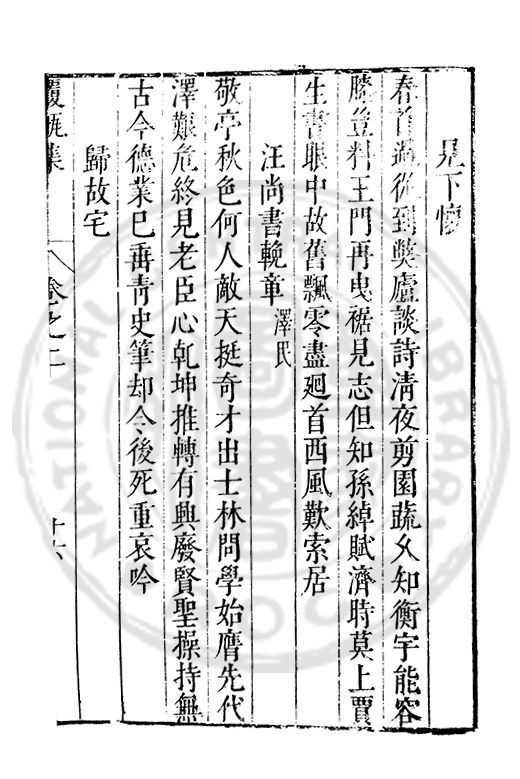 是下懷
春首過從到弊廬談詩清夜剪園蔬久知衡宇能容
膝豈料王門再曳裾見志但知孫綽賦濟時莫上賈
生書眼中故舊飄零盡廻首西風歎索居
汪尚書輓章 澤民
敬亭秋色何人敵天挺奇才出士林問學始膺先代
澤艱危終見老臣心乾坤推轉有興廢賢聖操持無
古今德業已垂青史筆却令後死重哀吟
歸故宅
覆瓿集 卷之二 十六
NATIONAL LIBRARY